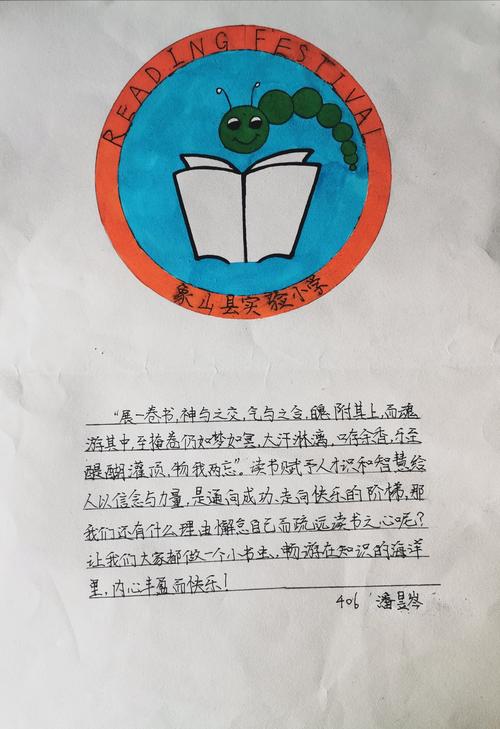 READING FESTIVAL
象山县实验小学
“展一卷书,神与之交,气与之合,魄附其上,而魂
游其中,至掩卷仍如梦如冥,大汗淋漓,口存余香,乐至
醍醐灌顶,物我两忘”。读书赋予人才识和智慧给
人以信念与力量,是通向成功、走向快乐的阶梯,那
我们还有什么理由懈怠自己而疏远读书之心呢?
让我们大家都做一个小书虫,畅游在知识的海洋
里,内心丰盈而快乐!
406 潘昱岑